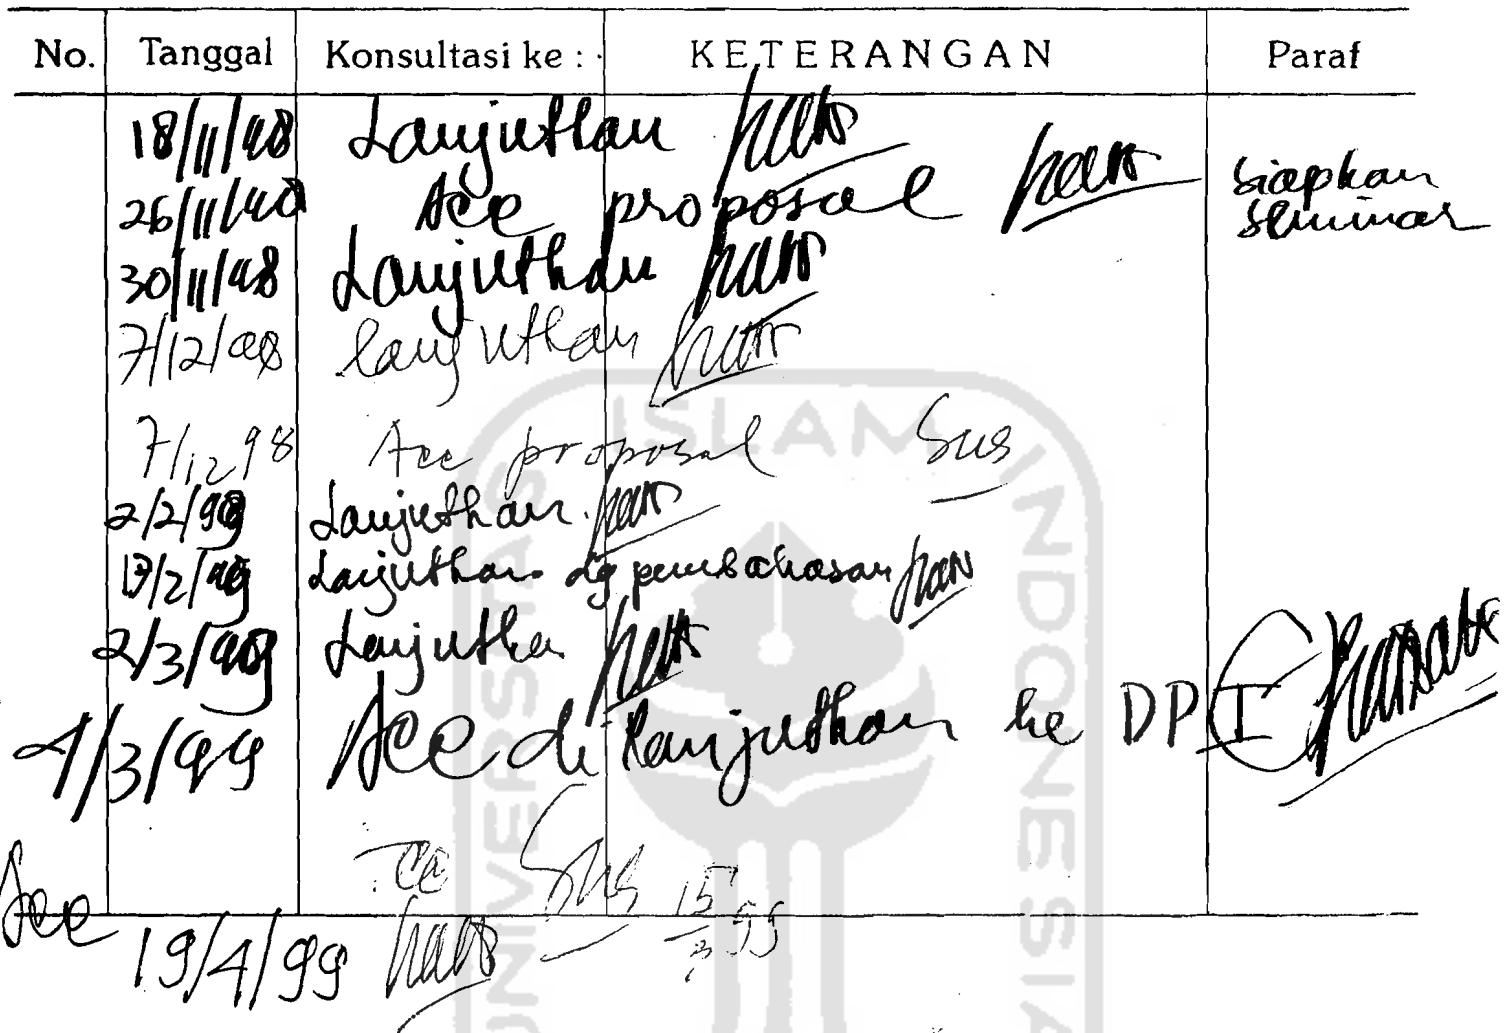 No. Tanggal Konsultasi ke : KETERANGAN Paraf
18/11/98 Lanjutkan
26/11/98 Acc proposal siapkan
seminar
30/11/98 Lanjutkan
7/12/98 lanjutkan
7/12 98 Acc proposal Sus
2/2/99 Lanjutkan
/2/99 Lanjutkan dg pembahasan
2/3/99 Lanjutkan
4/3/99 Acc di lanjutkan ke DP I
Sus 15/ 99
Acc 19/4/99
UNIVERSITAS ISLAM INDONESIA